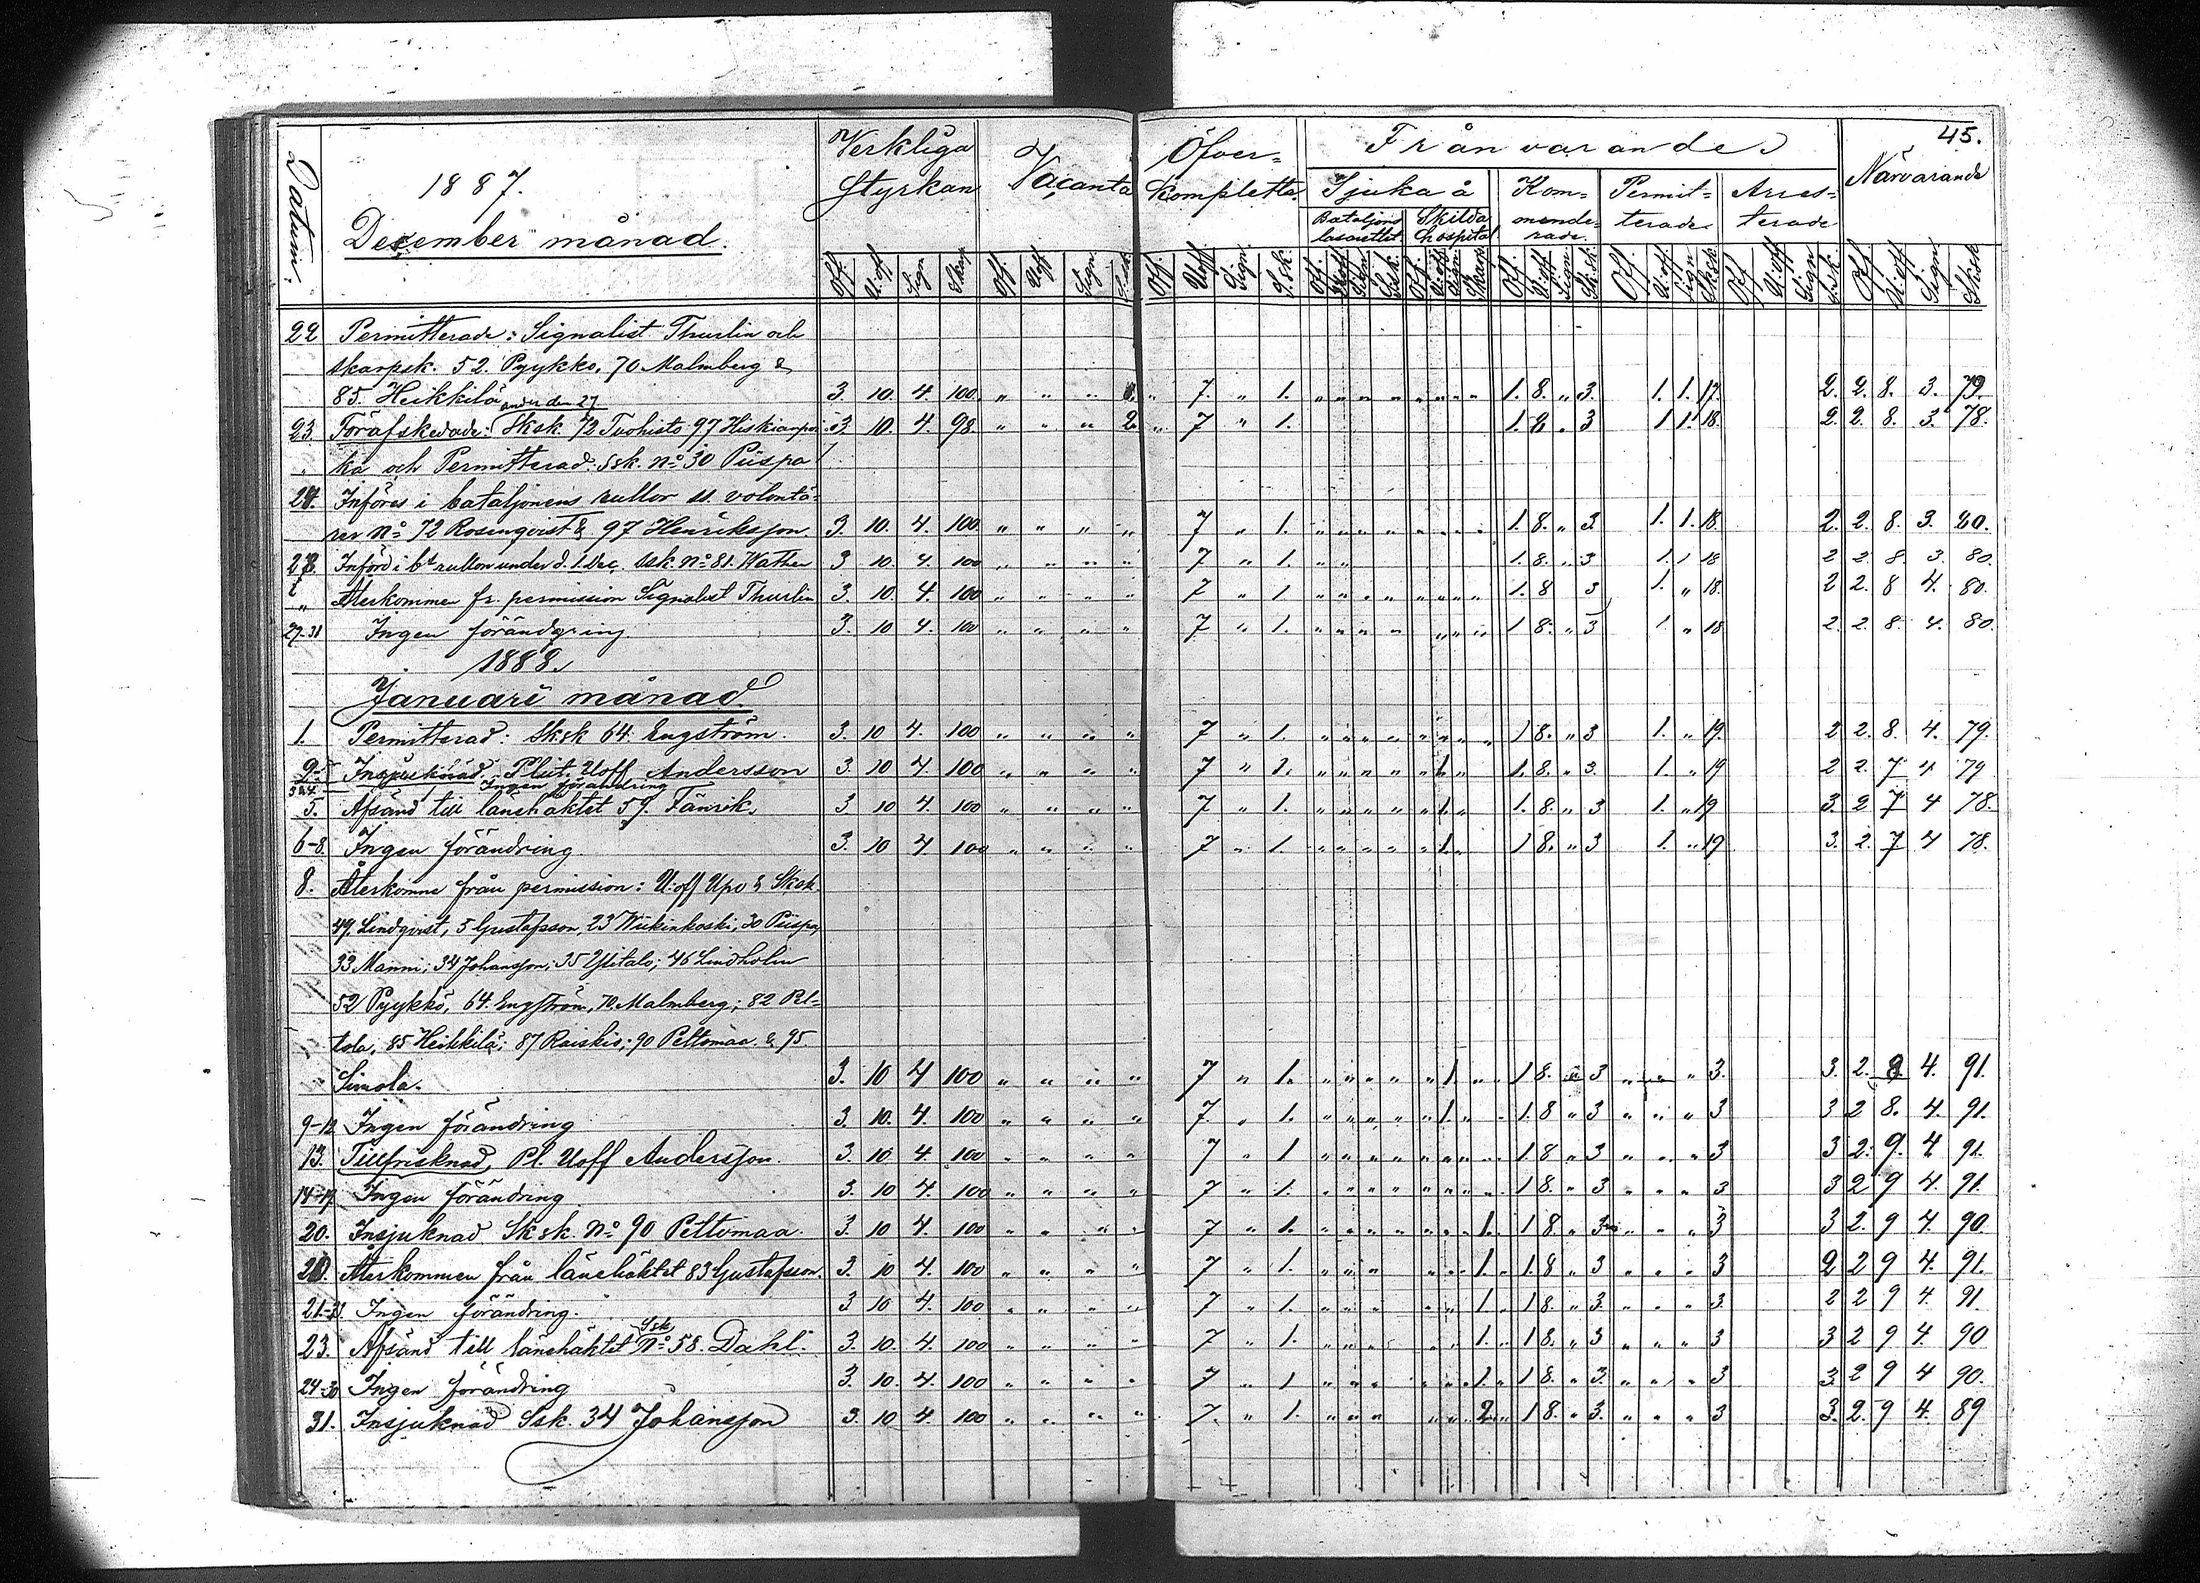 45.
Datum.
1887.
December månad.
Verkliga Styrkan
Vacanta
Öfver-komplette.
Frånvarande.
Närvarande
Sjuka å
Bataljons lasarettet
Skilda hospital
Kom-mende-rade.
Permit-terade
Arres-terade
Off. U:off Sign. Skarp Off. Uoff Sign. S.sk.
Off. Uoff Sign. S.sk. Off. Uoff Sign. S.sk. Off. U.off Sign. Skarp. Off. U.off Sign. Sk.sk. Off. U.off Sign. Sk.sk. Off U.off Sign S.sk Off U.off Sign. Sk.sk
22 Permitterade: Signalist Thurlin och
skarpsk. 52. Pyykkö, 70 Malmberg &
85. Heikkilä 3. 10. 4. 100. „ „ „ „ 7. „ 1. „ „ „ „ „ „ „ „ 1. 8. „ 3. 1. 1. 17. 2. 2. 8. 3. 79.
under den 27
23. Föräfskedade: Sksk. 72 Tuohisto 97 Hiskianpoi- 3. 10. 4. 98. „ „ „ 2. „ 7 „ 1. 1. 8. „ 3 1 1. 18. 2. 2. 8. 3. 78.
„ ka och Permitterad: Ssk. No 30 Piispa
24. Införes i bataljonens rullor ss. volontä-
rer No 72 Rosenqvist & 97 Henriksson. 3. 10. 4. 100. „ „ „ „ 7 „ 1. „ „ „ „ „ „ „ „ 1. 8. „ 3. 1. 1. 18. 2. 2. 8. 3. 80.
Införd i bt rullon under d. 1 Dec. Ssk. No 81. Wather 3 10. 4. 100 „ „ „ „ 7 „ 1. „ „ 1. 8. „ 3 1. 1 18 2 2 8. 3. 80.
„ Återkommen fr. permission Signalist Thurlin 3. 10. 4. 100 „ „ „ „ 7 „ 1. „ „ „ „ „ „ „ „ 1. 8 3 1. „ 18. 2 2. 8 4. 80.
27-31 Ingen förändring 3. 10 4. 100 „ „ „ „ 7 „ 1. „ „ „ „ „ „ „ 1 8. „ 3 1. „ 18 2. 2. 8. 4. 80.
1888.
Januari månad.
1. Permitterad: Sksk 64. Engström. 3. 10 4. 100 „ „ „ „ 7 „ 1. „ „ „ „ „ „ „ „ 1 8. „ 3 1. „ 19. 2 2. 8. 4. 79.
2. Insjuknad. Plut. Uoff. Andersson 3. 10 4. 100 „ „ „ „ 7 „ 1. „ „ „ „ „ 1. „ 1. 8. „ 3. 1. „ 19 2 2. 7 4 79
3 à 4. Ingen förändring
5. Afsänd till länehäktet 59. Fänrik. 3 10 4. 100 „ „ „ „ 7 „ 1. „ „ „ „ „ 1. „ 1. 8. „ 3 1. „ 19 3. 2 7 4 78.
6-8. Ingen förändring. 3. 10 4. 100 „ „ „ „ 7 „ 1. „ „ „ „ „ 1. „ 1 8. „ 3 1. „ 19 3. 2. 7 4 78.
8. Återkomne från permission: U:off Upo & Sksk
49. Lindqvist, 5 Gustafsson, 23 Wiikinkoski, 30 Piispa,
33 Manni; 34 Johansson; 35 Ylitalo; 46 Lindholm
52 Pyykkö, 64. Engström, 70 Malmberg; 82 Pel-
tola, 85 Heikkilä; 87 Raiskio; 90 Peltomaa & 95
„ Simola. 3. 10 4 100 „ „ „ „ 7 „ 1. „ „ „ „ „ 1. „ „ 1 8. „ 3 „ „ „ 3. 3. 2. 8. 4. 91.
9-12 Ingen förändring 3. 10. 4. 100 „ „ „ „ 7. „ 1. „ „ „ „ „ 1. „ „ 1. 8 „ 3 „ „ „ 3 3 2 8. 4. 91.
13. Tillfrisknad, Pl. Uoff Andersson. 3. 10 4. 100 „ „ „ „ 7 „ 1 „ „ „ „ „ „ „ „ 1. 8 „ 3 „ „ „ 3 3 2. 9. 4 91.
14-19 Ingen förändring 3. 10 4. 100 „ „ „ „ 7 „ 1. „ „ „ „ „ „ „ „ 1 8. „ 3 „ „ „ 3 3 2 9 4. 91.
20. Insjuknad Sksk. No 90 Peltomaa. 3. 10 4. 100 „ „ „ „ 7 „ 1. „ „ „ „ „ „ „ 1. 1 8 „ 3 „ „ „ 3 3 2. 9 4. 90.
20. Återkommen från länehäktet 83 Gustafsson. 3. 10 4. 100 „ „ „ „ 7 „ 1. „ „ „ „ „ „ 1. 1. 8 „ 3 „ „ „ 3 2 2 9 4. 91.
Ingen förändring. 3 10 4. 100 „ „ „ „ 7 „ 1. „ „ „ „ „ „ 1. 1 8. „ 3. „ „ „ 3. 2 2 9 4. 91
23. Afsänd till länehäktet Ssk No 58. Dahl. 3. 10. 4. 100 „ „ „ „ 7 „ 1. „ „ „ „ „ „ 1. 1 8. „ 3 „ „ „ 3 3 2 9 4. 90
24-30 Ingen förändring 3. 10. 4. 100 „ „ „ „ 7 „ 1 „ „ „ „ „ „ 1. 1 8. „ 3. „ „ „ 3 3 2 9 4 90.
31. Insjuknad Ssk. 34 Johansson 3. 10 4. 100 „ „ „ „ 7. „ 1. „ „ „ „ „ „ 2. 1 8. „ 3. „ „ „ 3 3. 2. 9 4. 89